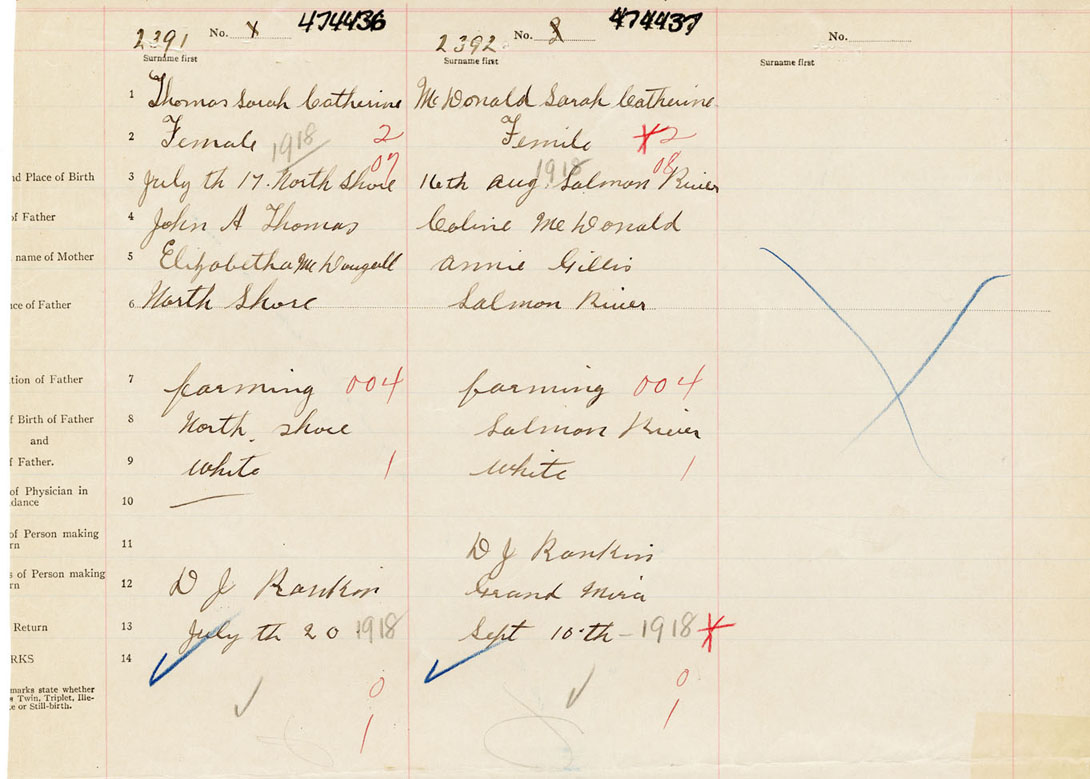 2391 No. 1 474436
Surname first
2392 No. 2 474437
Surname first
No.
Surname first
1 Thomas Sarah Catherine McDonald Sarah Catherine
2 Female 1918 2 Femile 2
nd Place of Birth 3 July th 17. North Shore 07 16th Aug. 1918 Salmon River 08
of Father 4 John A Thomas Coline McDonald
name of Mother 5 Elizabetha McDougall Annie Gillis
ce of Father 6 North Shore Salmon River
tion of Father 7 farming 004 farming 004
f Birth of Father 8 North. shore Salmon River
and
f Father. 9 White 1 White 1
of Physician in
dance 10
of Person making
rn 11 D J Rankin
s of Person making
rn 12 D J Rankin Grand Mira
Return 13 July th 20 1918 Sept 10th - 1918
RKS 14
marks state whether
s Twin, Triplet, Ille-
e or Still-birth.
0 0
1 1